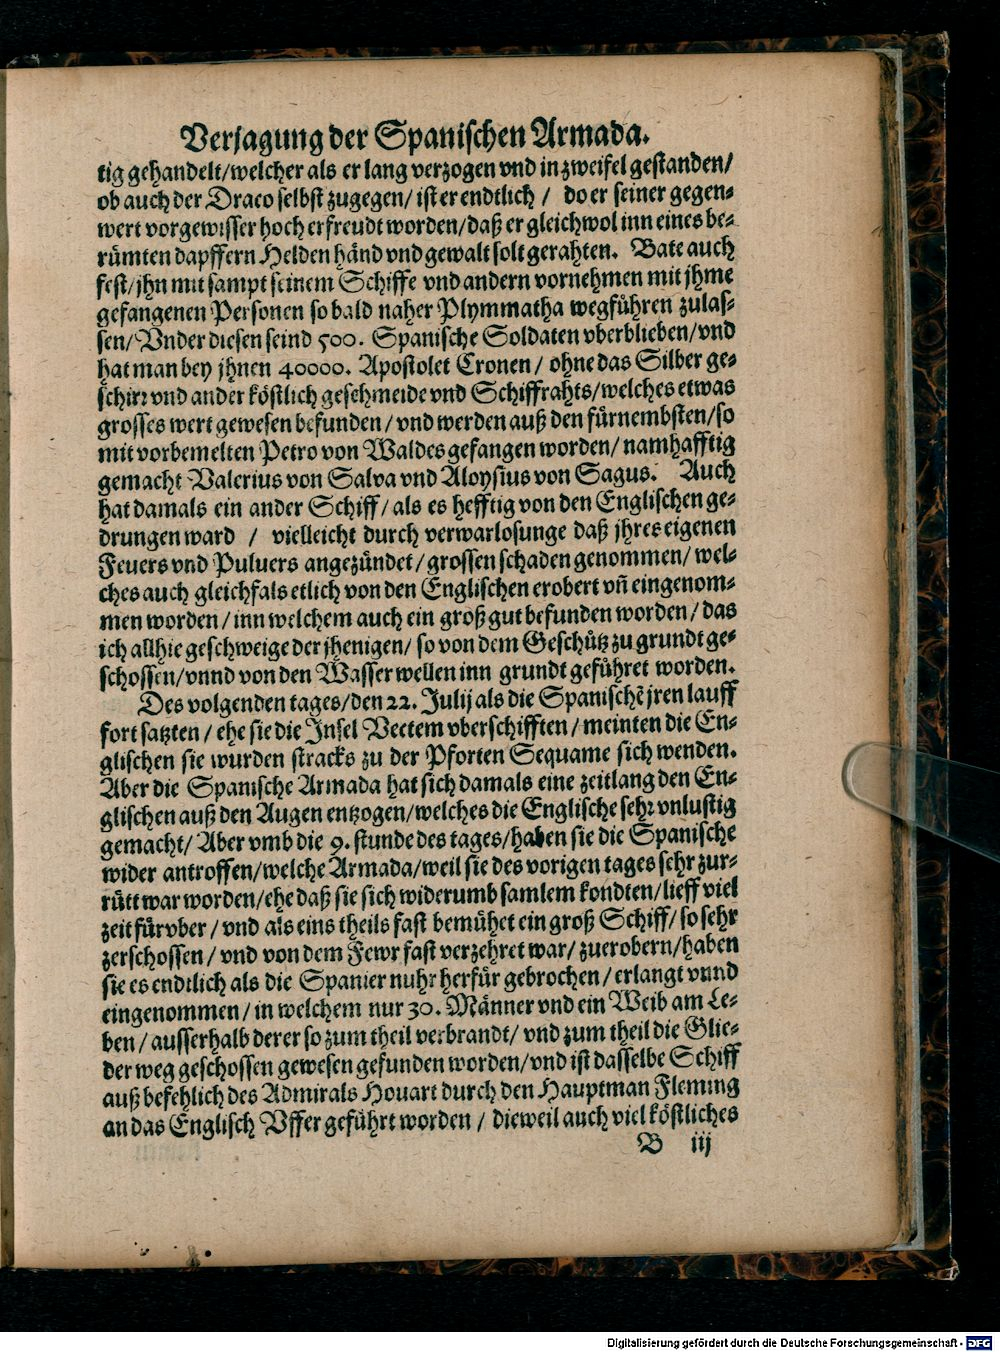 Verjagung der Spanischen Armada.
tig gehandelt/welcher als er lang verzogen vnd in zweifel gestanden/
ob auch der Draco selbst zugegen/ ist er endtlich / do er seiner gegen-
wert vorgewisser hoch erfreudt worden/daß er gleichwol inn eines be-
rümten dapffern Helden händ vnd gewalt solt gerahten. Bate auch
fest/jhn mit sampt seinem Schiffe vnd andern vornehmen mit jhme
gefangenen Personen so bald naher Plymmatha wegführen zulas-
sen/Vnder diesen seind 500. Spanische Soldaten vberblieben/vnd
hat man bey jhnen 40000. Apostolet Cronen / ohne das Silber ge-
schirr vnd ander köstlich geschmeide vnd Schiffrahts/welches etwas
grosses wert gewesen befunden / vnd werden auß den fürnembsten/so
mit vorbemelten Petro von Waldes gefangen worden/ namhafftig
gemacht Valerius von Salva vnd Aloysius von Sagus. Auch
hat damals ein ander Schiff/ als es hefftig von den Englischen ge-
drungen ward / vielleicht durch verwarlosunge daß jhres eigenen
Feuers vnd Puluers angezündet/ grossen schaden genommen/ wel-
ches auch gleichfals etlich von den Englischen erobert vn̄ eingenom-
men worden/ inn welchem auch ein groß gut befunden worden/ das
ich allhie geschweige der jhenigen/ so von dem Geschütz zu grundt ge-
schossen/vnnd von den Wasser wellen inn grundt geführet worden.
Des volgenden tages/den 22. Julij als die Spanischē jren lauff
fort satzten / ehe sie die Insel Vectem vberschifften/ meinten die En-
glischen sie wurden stracks zu der Pforten Sequame sich wenden.
Aber die Spanische Armada hat sich damals eine zeitlang den En-
glischen auß den Augen entzogen/welches die Englische sehr vnlustig
gemacht/ Aber vmb die 9. stunde des tages/haben sie die Spanische
wider antroffen/welche Armada/weil sie des vorigen tages sehr zur-
rütt war worden/ehe daß sie sich widerumb samlem kondten/lieff viel
zeit fürvber/ vnd als eins theils fast bemühet ein groß Schiff/ so sehr
zerschossen/ vnd von dem Fewr fast verzehret war/ zuerobern/haben
sie es endtlich als die Spanier nuhr herfür gebrochen/ erlangt vnnd
eingenommen / in welchem nur 30. Männer vnd ein Weib am Le-
ben/ ausserhalb derer so zum theil verbrandt/ vnd zum theil die Glie-
der weg geschossen gewesen gefunden worden/vnd ist dasselbe Schiff
auß befehlich des Admirals Houart durch den Hauptman Fleming
an das Englisch Vffer geführt worden / dieweil auch viel köstliches
B iij
Digitalisierung gefördert durch die Deutsche Forschungsgemeinschaft - DFG